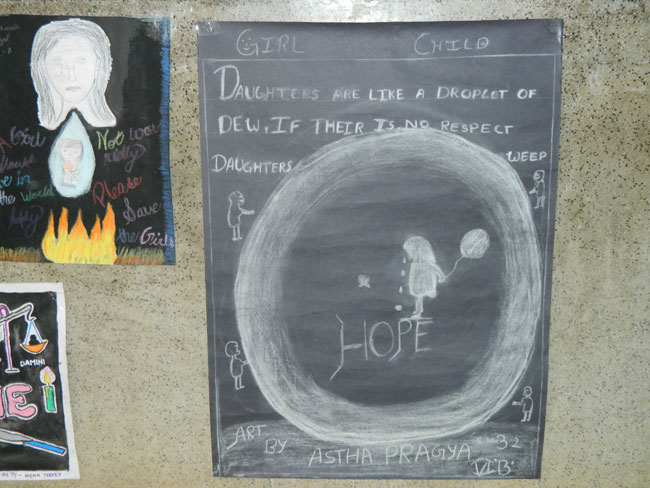 GIRL CHILD
DAUGHTERS ARE LIKE A DROPLET OF
DEW, IF THEIR IS NO RESPECT
DAUGHTERS WEEP
HOPE
ART BY ASTHA PRAGYA 32
VI 'B'
A Girl Not
in
the World
Please
Save
the Girls
DAMINI